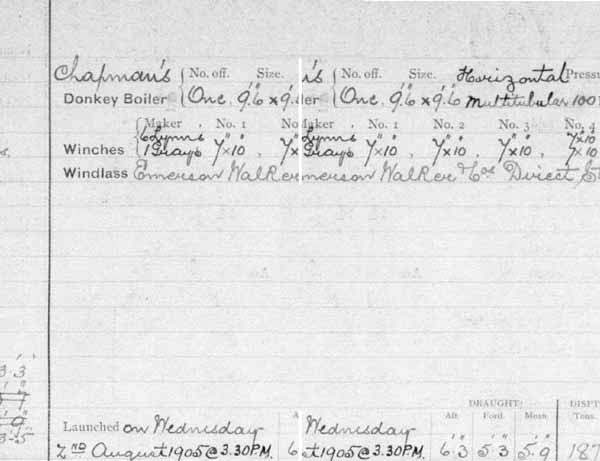 Chapman's { No. off. Size. 's { No. off. Size. Horizontal Pressu
Donkey Boiler One 9'.6" x 9'. ler One 9'.6" x 9'.6 Multitubular 100 l
Maker , No. 1 No Maker , No. 1 No. 2 No. 3 No. 4
6 Lynns 7" x 10" , 7" x Lynns 7" x 10" , 7" x 10" , 7" x 10" , 7" x 10"
Winches 1 Grays Grays 7 x 10
Windlass Emerson Walker merson Walker & Cos Direct St
3.3
3-5
DRAUGHT: DISPT
Aft. Forwd. Mean. Tons.
Launched on Wednesday A Wednesday
2ND August 1905 @ 3.30 P.M. 6 st 1905 @ 3.30 P.M. 6'.3" 5'.3" 5'.9" 187